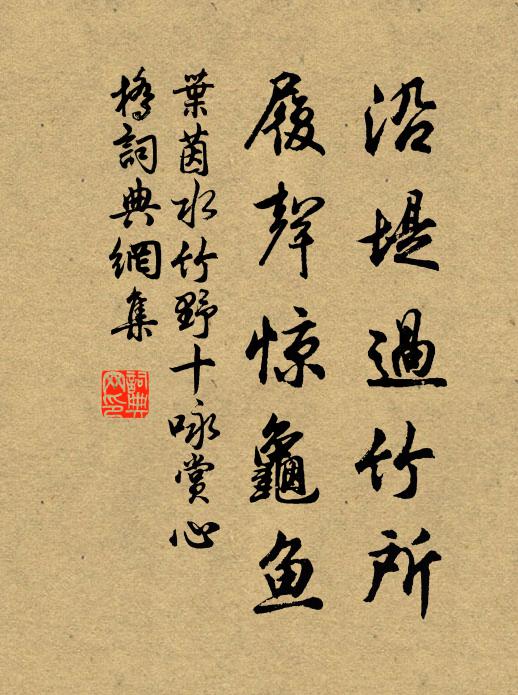 沿堤過竹所
履聲惊龜鱼
葉茵水竹野十咏賞心
橋詞典網集
詞典网印